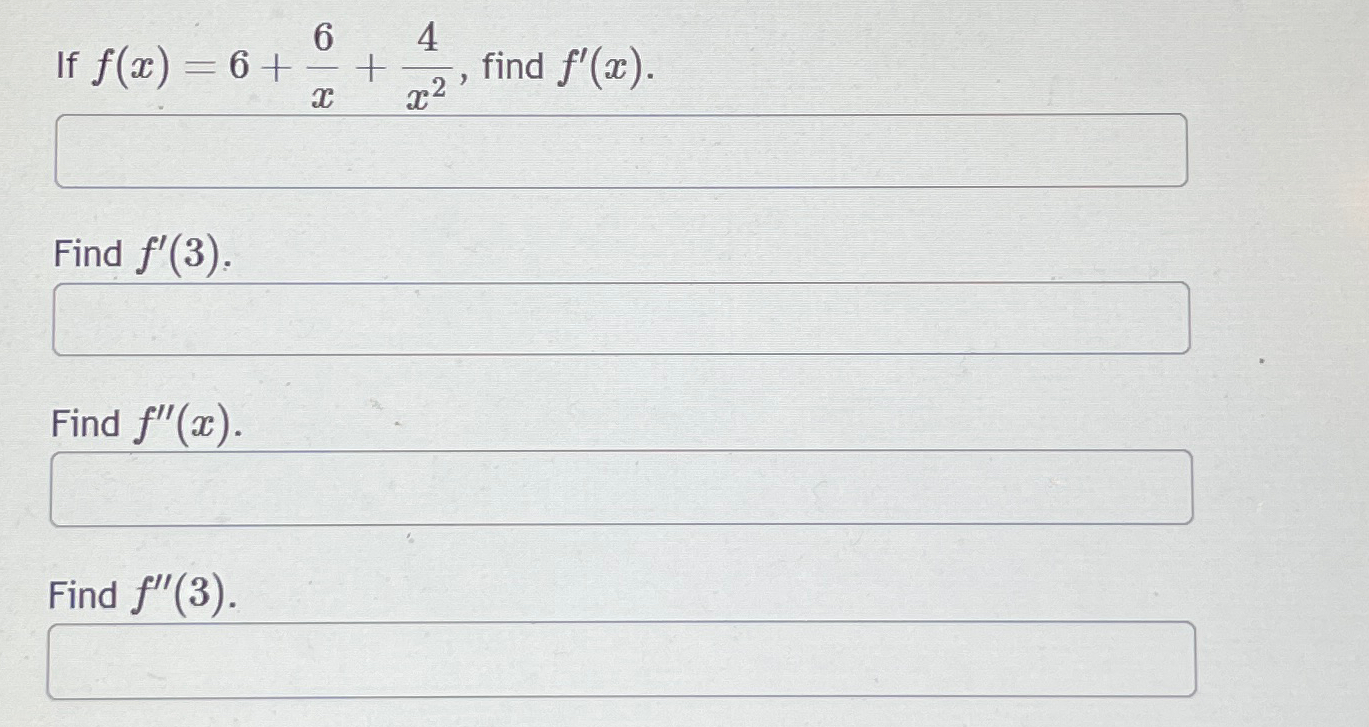 If $f(x) = 6 + \frac{6}{x} + \frac{4}{x^2}$, find $f'(x)$.
Find $f'(3)$.
Find $f''(x)$.
Find $f''(3)$.